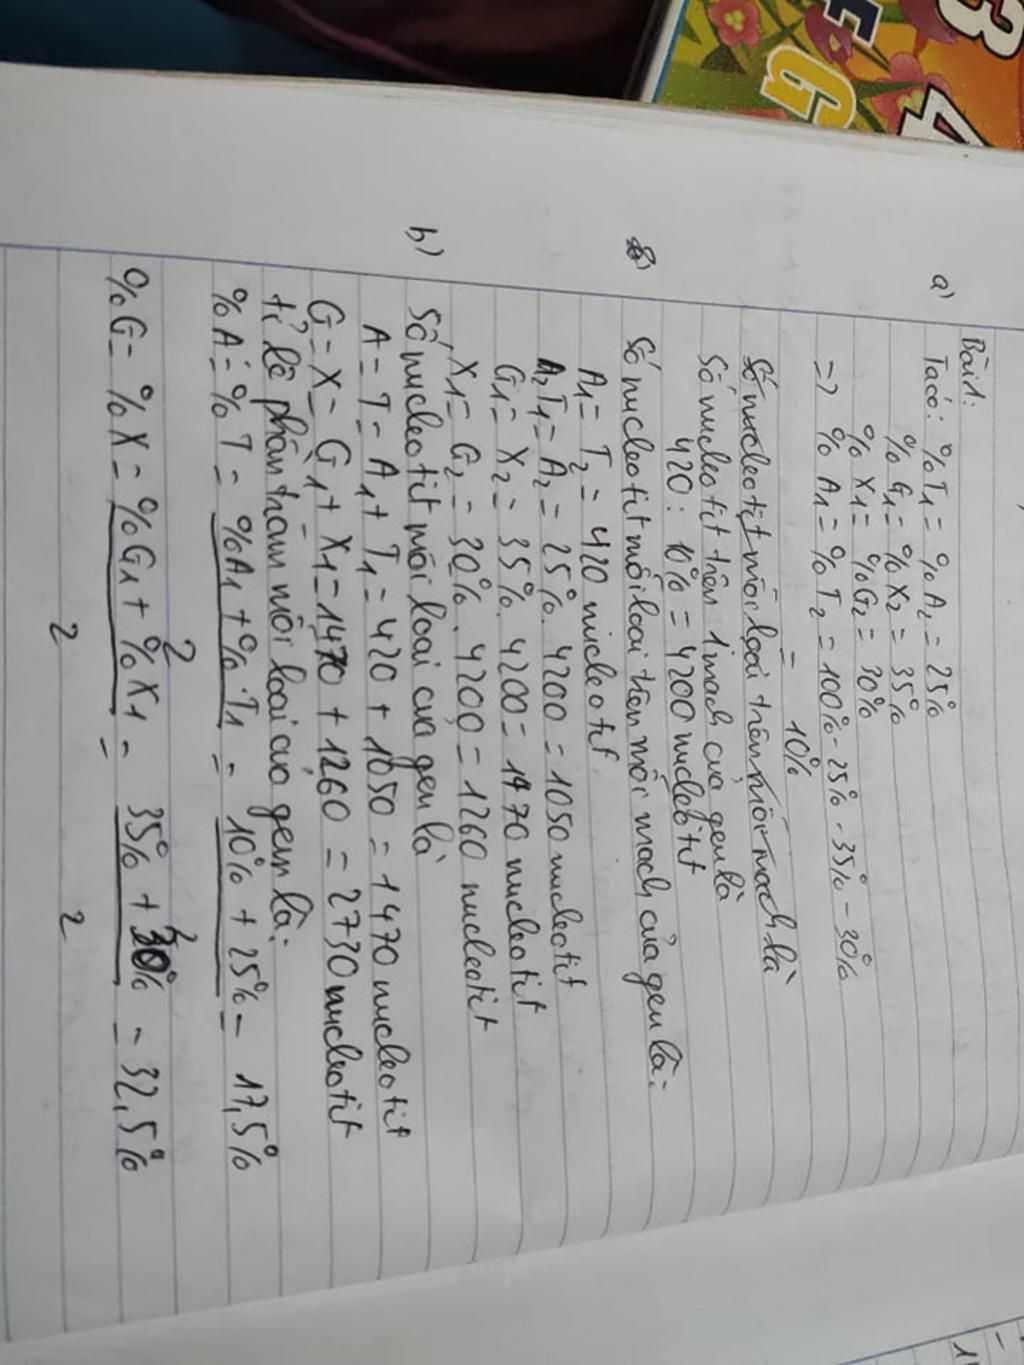 Bài 1:
a) Ta có: % T1 = % A2 = 25%
% G1 = % X2 = 35%
% X1 = % G2 = 30%
=> % A1 = % T2 = 100% - 25% - 35% - 30%
= 10%
Số nucleotit mỗi loại trên mỗi mạch là
Số nucleotit trên 1 mạch của gen là
420 : 10% = 4200 nucleotit
Số nucleotit mỗi loại trên mỗi mạch của gen là:
A1 = T2 = 420 nucleotit
T1 = A2 = 25%. 4200 = 1050 nucleotit
G1 = X2 = 35%. 4200 = 1470 nucleotit
X1 = G2 = 30%. 4200 = 1260 nucleotit
b) Số nucleotit mỗi loại của gen là
A = T = A1 + T1 = 420 + 1050 = 1470 nucleotit
G = X = G1 + X1 = 1470 + 1260 = 2730 nucleotit
tỉ lệ phần trăm mỗi loại của gen là:
% A = % T = % A1 + % T1 = 10% + 25% = 17,5%
2 2
% G = % X = % G1 + % X1 = 35% + 30% = 32,5%
2 2
3
4
F
G